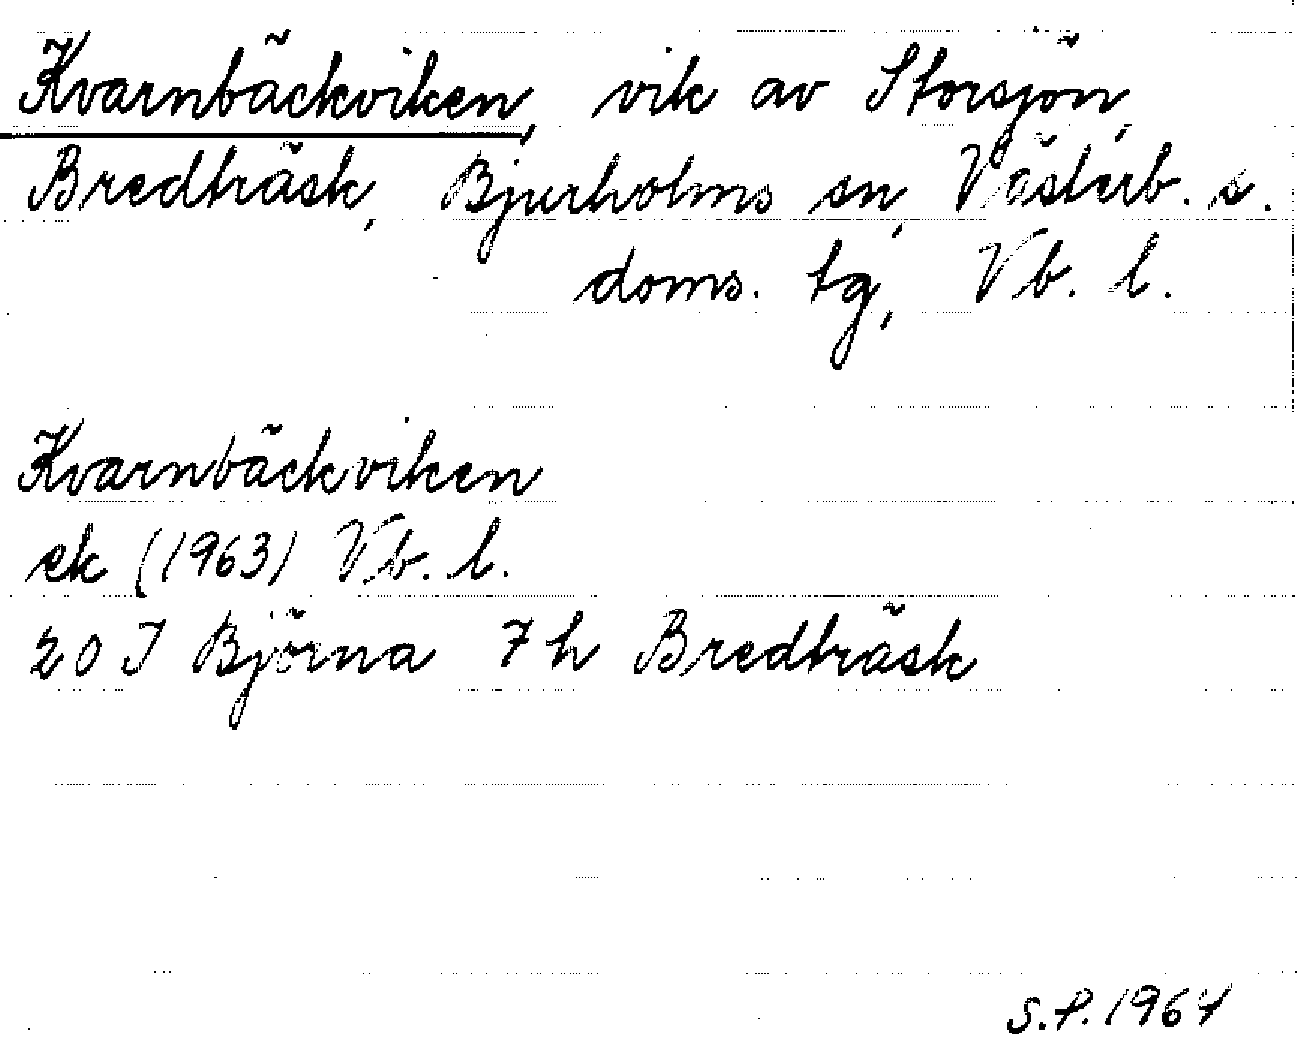 Kvarnbäckviken, vik av Storsjön,
Bredträsk, Bjurholms sn, Västerb. s.
doms. tg, Vb. l.
Kvarnbäckviken
ek (1963) Vb. l.
20 J Björna 7 h Bredträsk
S.P. 1967